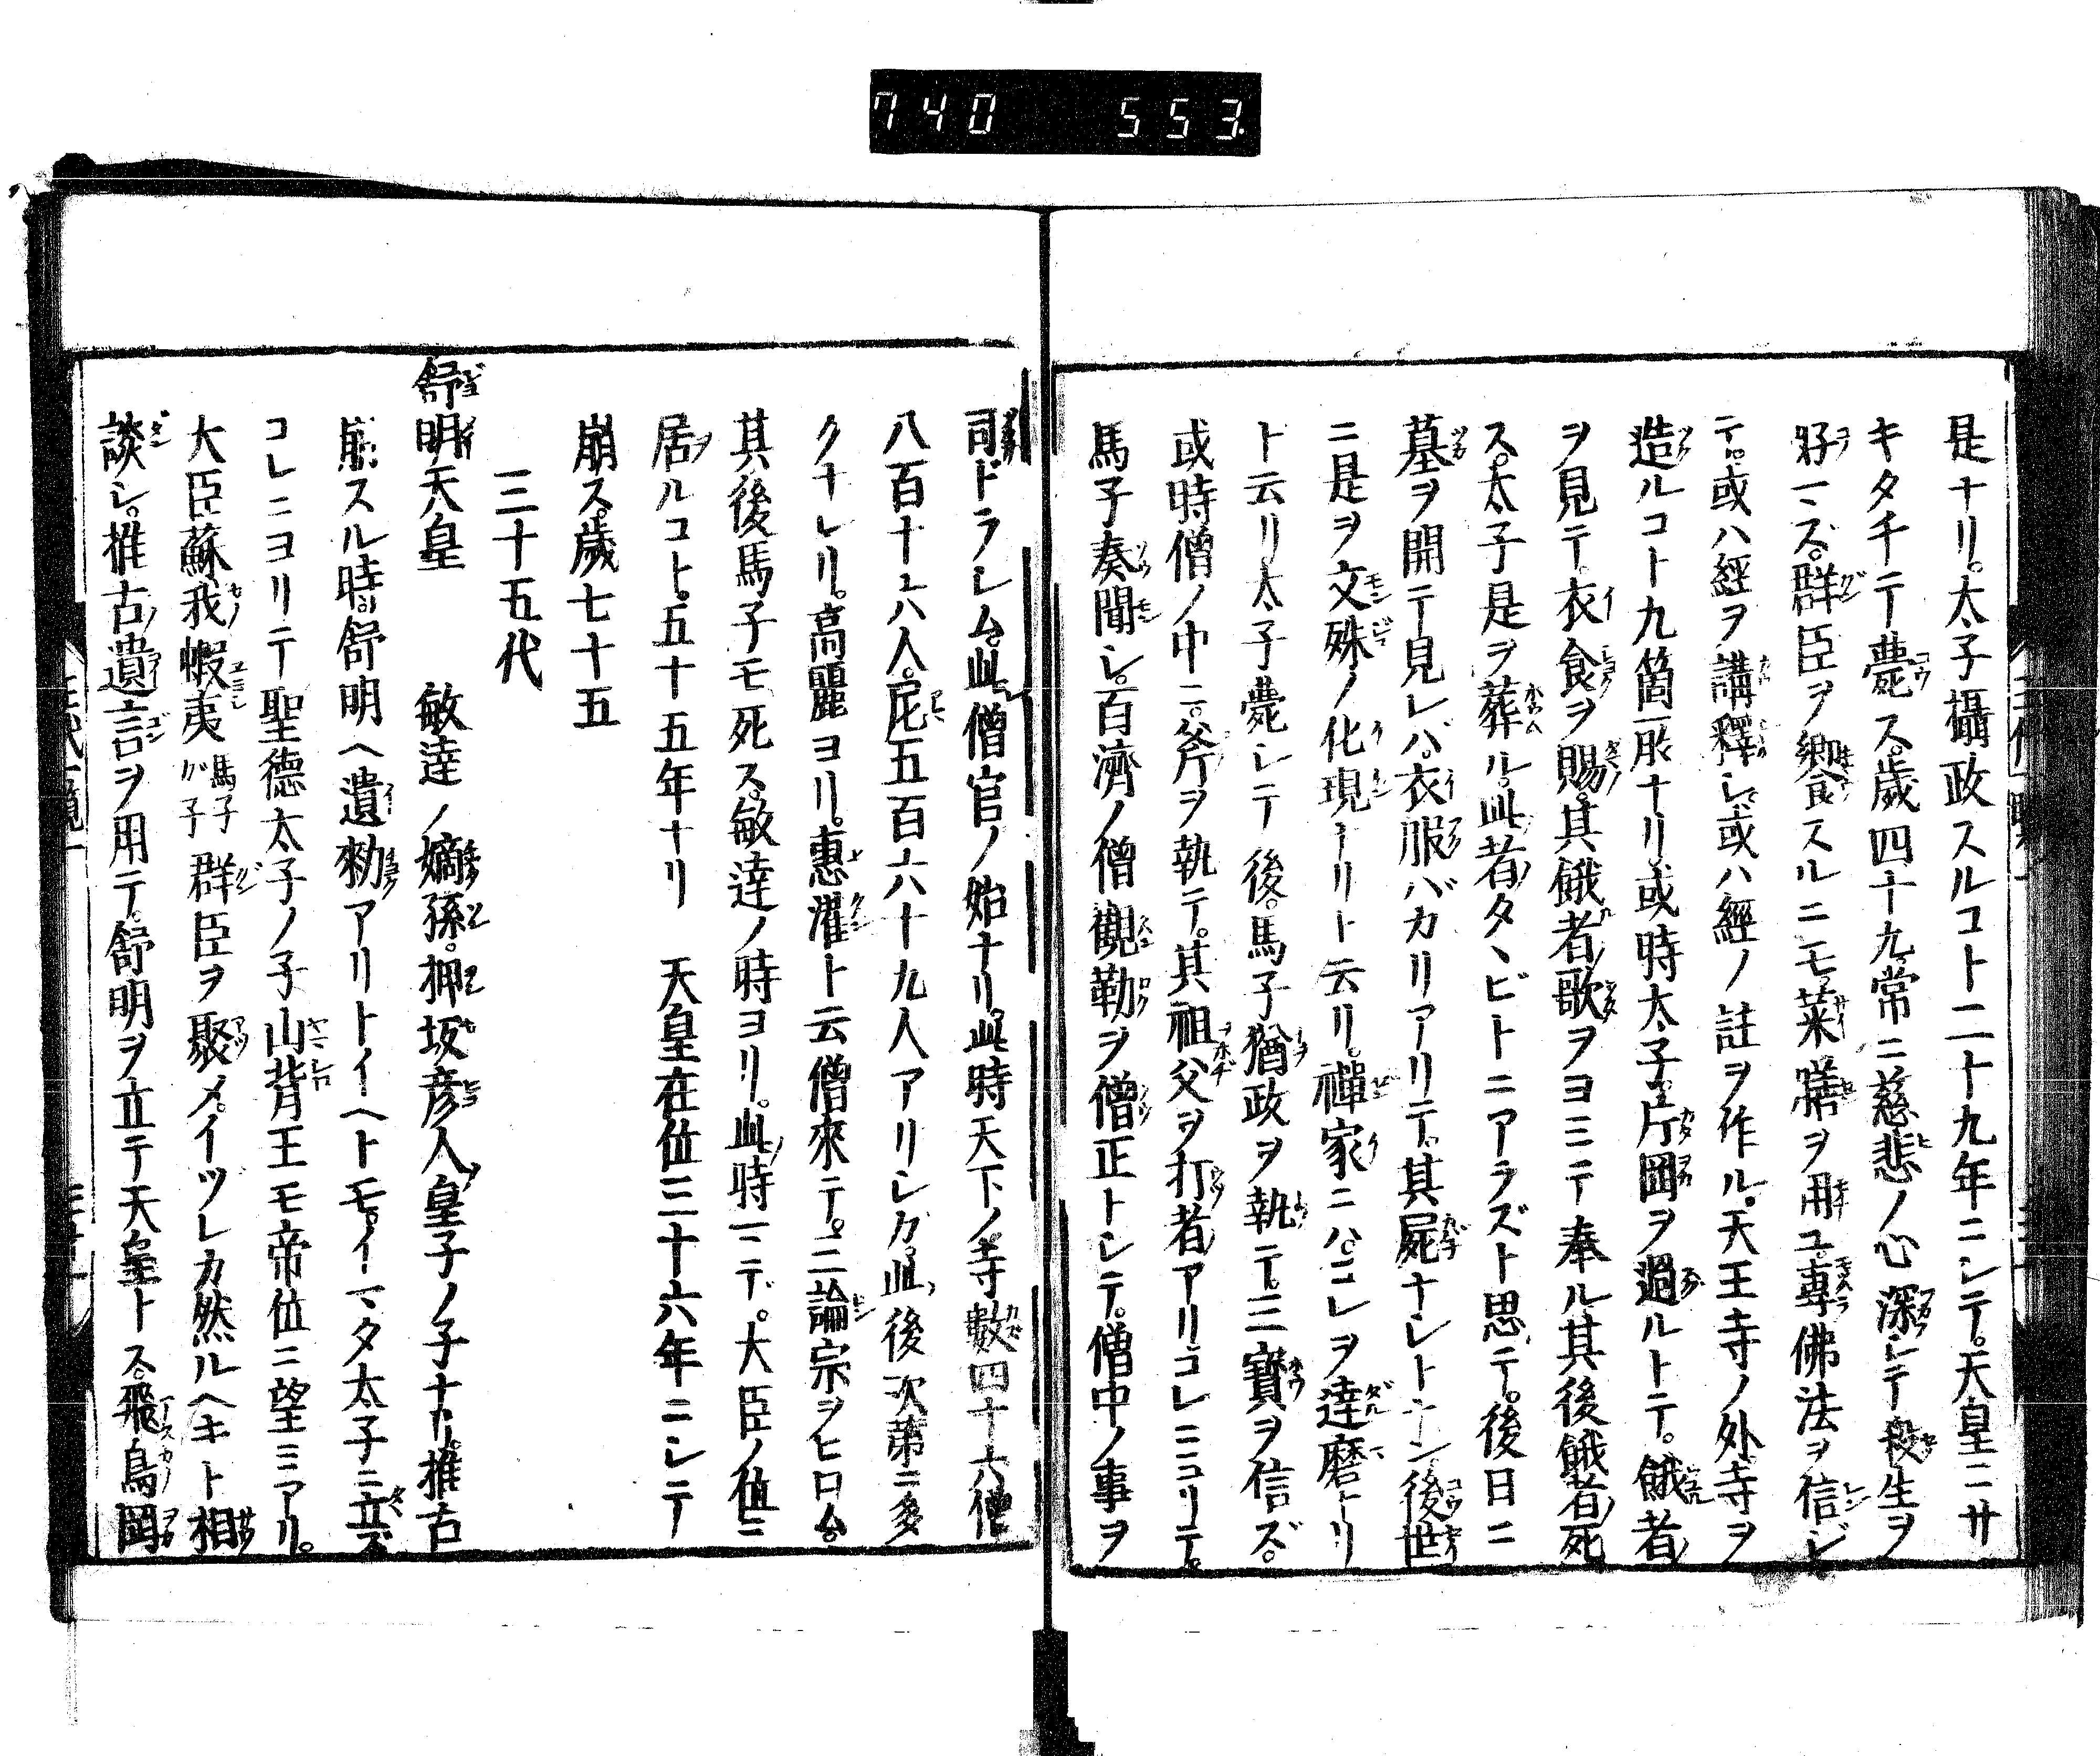 740 553
是ナリ。太子攝政スルコト二十九年ニシテ。天皇ニサ
キタチテ薨ス。歲四十九常ニ慈悲ノ心深シテ殺生ヲ
好マズ。群臣ヲ饗スルニモ菜膳ヲ用ユ。專佛法ヲ信ジ
テ。或ハ經ヲ講釋シ。或ハ經ノ註ヲ作ル。天王寺ノ外寺ヲ
造ルコト九箇所ナリ。或時太子片岡ヲ過ルトテ。餓者
ヲ見テ。衣食ヲ賜。其餓者歌ヲヨミテ奉ル其後餓者死
ス。太子是ヲ葬ル。此者タヾビトニアラズト思テ。後日ニ
墓ヲ開テ見レバ。衣服バカリアリテ。其屍ナシトナン後世
ニ是ヲ文殊ノ化現ナリト云リ。禪家ニハ。コレヲ達磨ナリ
ト云リ太子薨シテ後。馬子猶政ヲ執テ。三寶ヲ信ズ。
或時僧ノ中ニ。斧ヲ執テ。其祖父ヲ打者アリ。コレニヨリテ。
馬子奏聞シ。百濟ノ僧觀勒ヲ僧正トシテ。僧中ノ事ヲ
司ドラシム。此僧官ノ始ナリ。此時天下ノ寺數四十六僧
八百十六人。尼五百六十九人アリシガ。此後次第ニ多
クナレリ。高麗ヨリ。惠灌ト云僧來テ。三論宗ヲヒロム。
其後馬子モ死ス。敏達ノ時ヨリ。此時マデ。大臣ノ位ニ
居ルコト。五十五年ナリ 天皇在位三十六年ニシテ
崩ス。歲七十五
三十五代
舒明天皇 敏達ノ嫡孫。押坂彥人皇子ノ子ナリ。推古
崩スル時。舒明ヘ遺勅アリトイヘトモ。イマタ太子ニ立ス
コレニヨリテ聖德太子ノ子山背王モ帝位ニ望ミアリ。
大臣蘇我蝦夷馬子ガ子群臣ヲ聚メ。イヅレカ然ルヘキト相
談シ。推古ノ遺言ヲ用テ。舒明ヲ立テ天皇トス。飛鳥岡